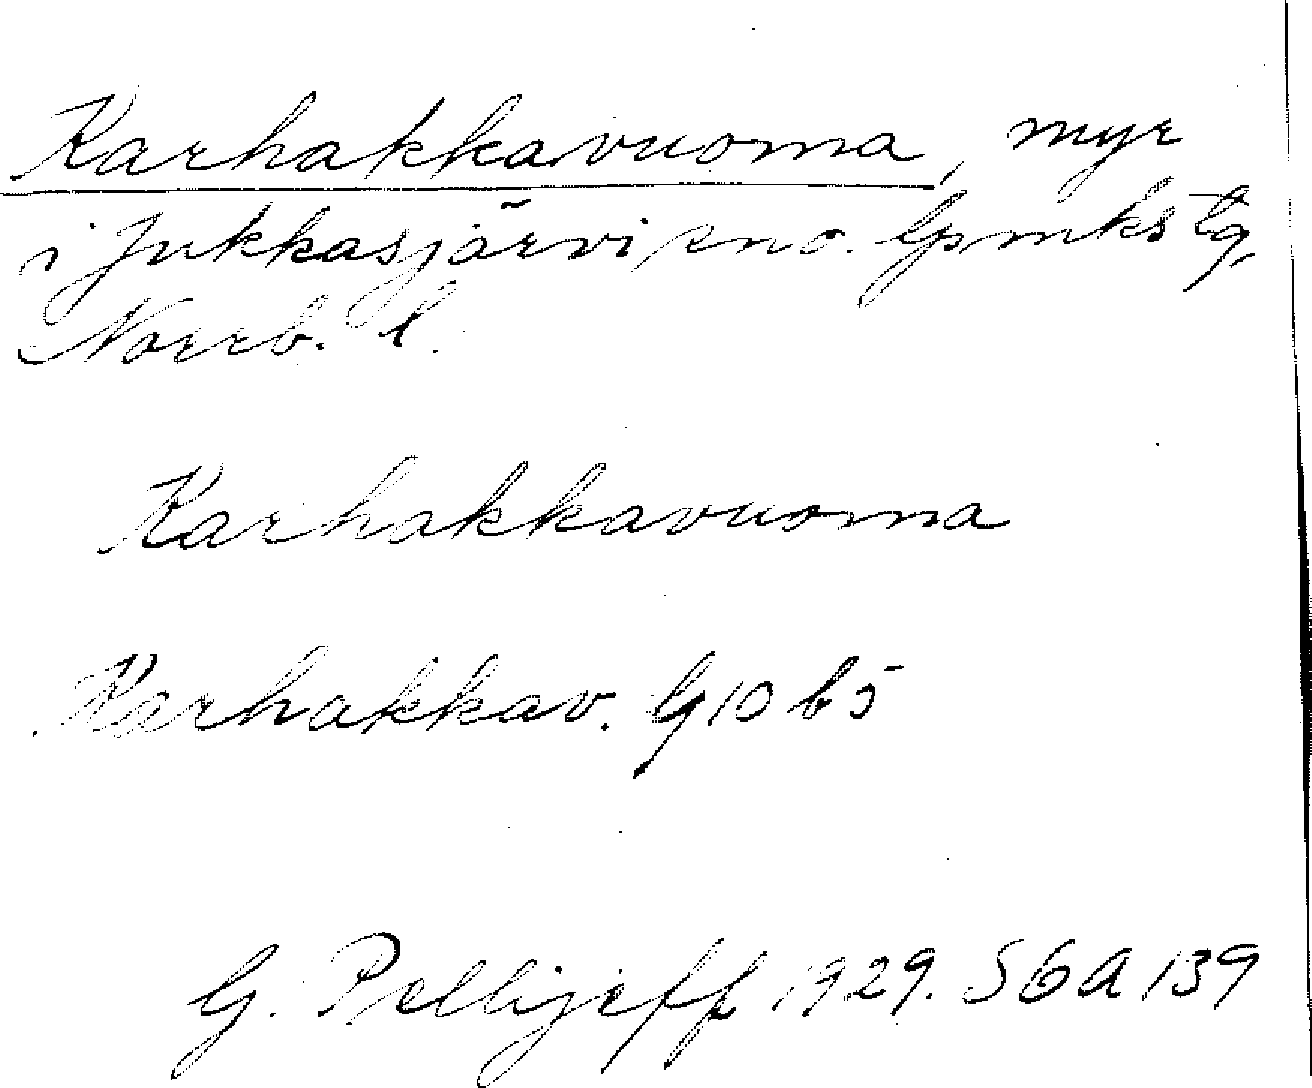 Karhakkavuoma, myr
i Jukkasjärvi sno. Gpmks tg,
Norrb. l.
Karhakkavuoma
Karhakkav. G10 b5
G. Pellijeff 1929. S6a 139